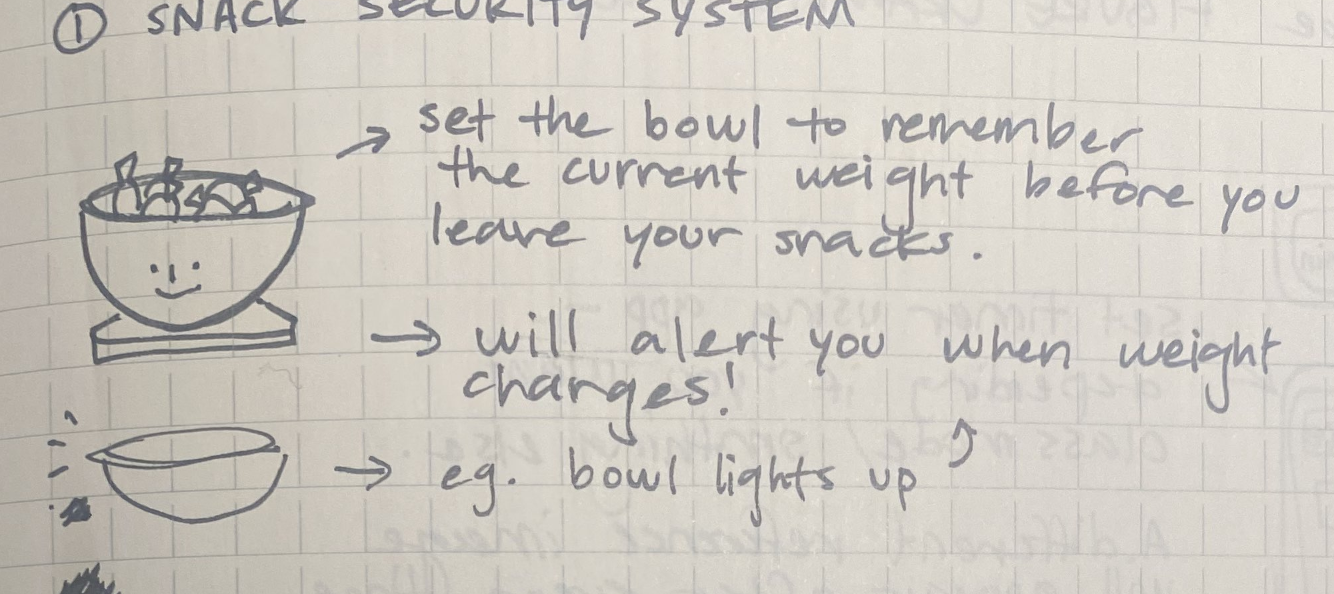 ① SNACK SECURITY SYSTEM
→ set the bowl to remember
the current weight before you
leave your snacks.
→ will alert you when weight
changes!
→ eg. bowl lights up